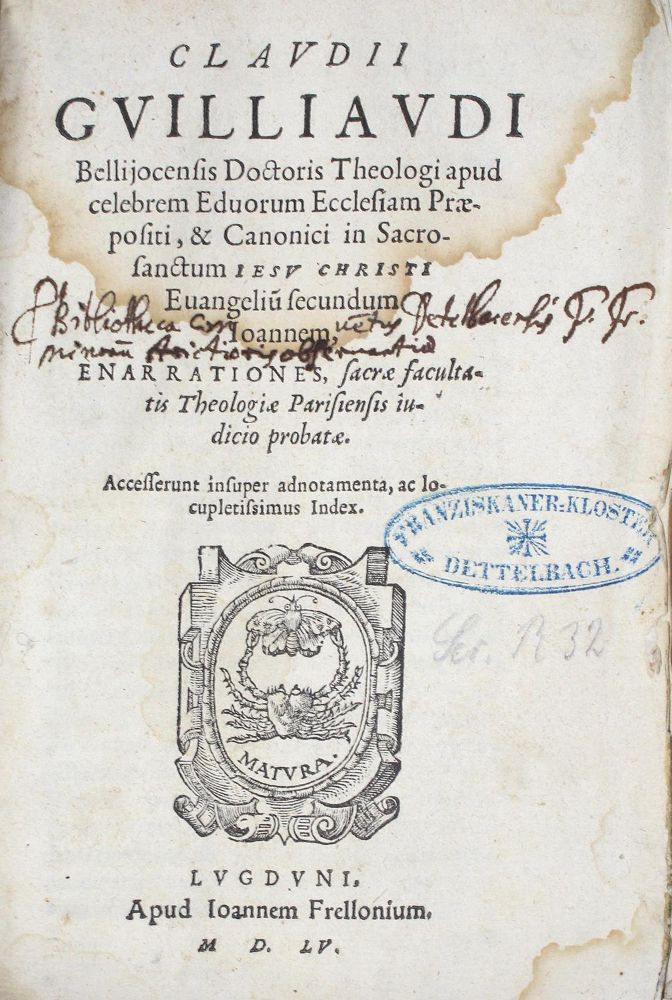 CLAVDII
GVILLIAVDI
Bellijocensis Doctoris Theologi apud
celebrem Eduorum Ecclesiam Præ-
positi, & Canonici in Sacro-
sanctum IESV CHRISTI
Euangeliũ secundum
Bibliotheca
Ioannem,
ENARRATIONES, sacræ faculta-
tis Theologiæ Parisiensis iu-
dicio probatæ.
Accesserunt insuper adnotamenta, ac lo-
cupletissimus Index.
FRANZISKANER-KLOSTER
DETTELBACH.
R 32
MATVRA.
LVGDVNI.
Apud Ioannem Frellonium.
M D. LV.